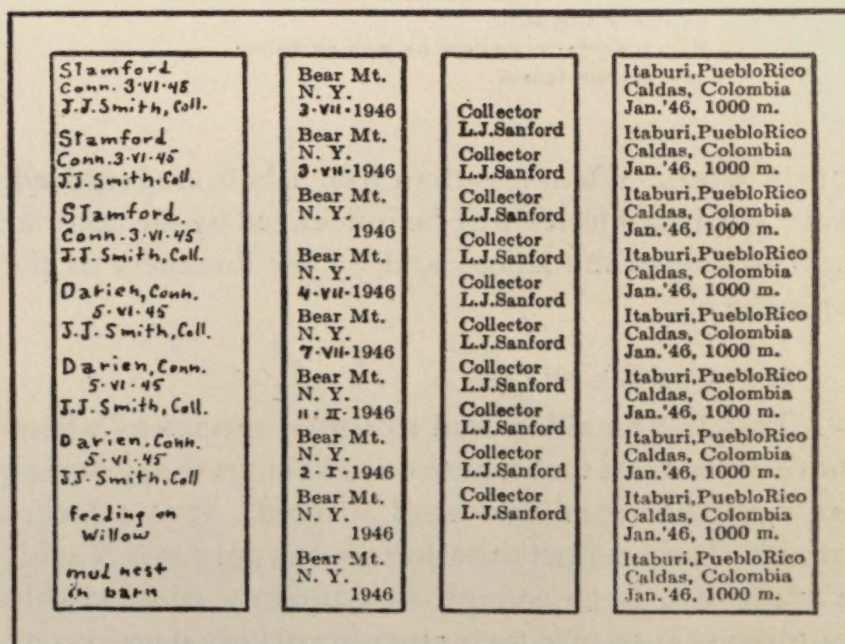 Stamford
Conn. 3·VI·45
J.J. Smith, Coll.
Stamford
Conn. 3·VI·45
J.J. Smith, Coll.
Stamford
Conn. 3·VI·45
J.J. Smith, Coll.
Darien, Conn.
5·VI·45
J.J. Smith, Coll.
Darien, Conn.
5·VI·45
J.J. Smith, Coll.
Darien, Conn.
5·VI·45
J.J. Smith, Coll
feeding on
Willow
mud nest
in barn
Bear Mt.
N. Y.
3·VII·1946
Bear Mt.
N. Y.
3·VII·1946
Bear Mt.
N. Y.
1946
Bear Mt.
N. Y.
4·VII·1946
Bear Mt.
N. Y.
7·VII·1946
Bear Mt.
N. Y.
11·II·1946
Bear Mt.
N. Y.
2·I·1946
Bear Mt.
N. Y.
1946
Bear Mt.
N. Y.
1946
Collector
L.J.Sanford
Collector
L.J.Sanford
Collector
L.J.Sanford
Collector
L.J.Sanford
Collector
L.J.Sanford
Collector
L.J.Sanford
Collector
L.J.Sanford
Collector
L.J.Sanford
Collector
L.J.Sanford
Collector
L.J.Sanford
Itaburi,PuebloRico
Caldas, Colombia
Jan.'46, 1000 m.
Itaburi,PuebloRico
Caldas, Colombia
Jan.'46, 1000 m.
Itaburi,PuebloRico
Caldas, Colombia
Jan.'46, 1000 m.
Itaburi,PuebloRico
Caldas, Colombia
Jan.'46, 1000 m.
Itaburi,PuebloRico
Caldas, Colombia
Jan.'46, 1000 m.
Itaburi,PuebloRico
Caldas, Colombia
Jan.'46, 1000 m.
Itaburi,PuebloRico
Caldas, Colombia
Jan.'46, 1000 m.
Itaburi,PuebloRico
Caldas, Colombia
Jan.'46, 1000 m.
Itaburi,PuebloRico
Caldas, Colombia
Jan.'46, 1000 m.